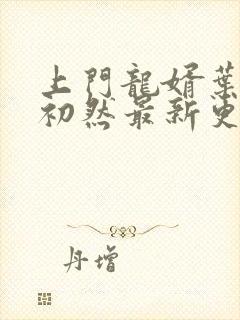 上門龍婿葉
初然最新更
丹增